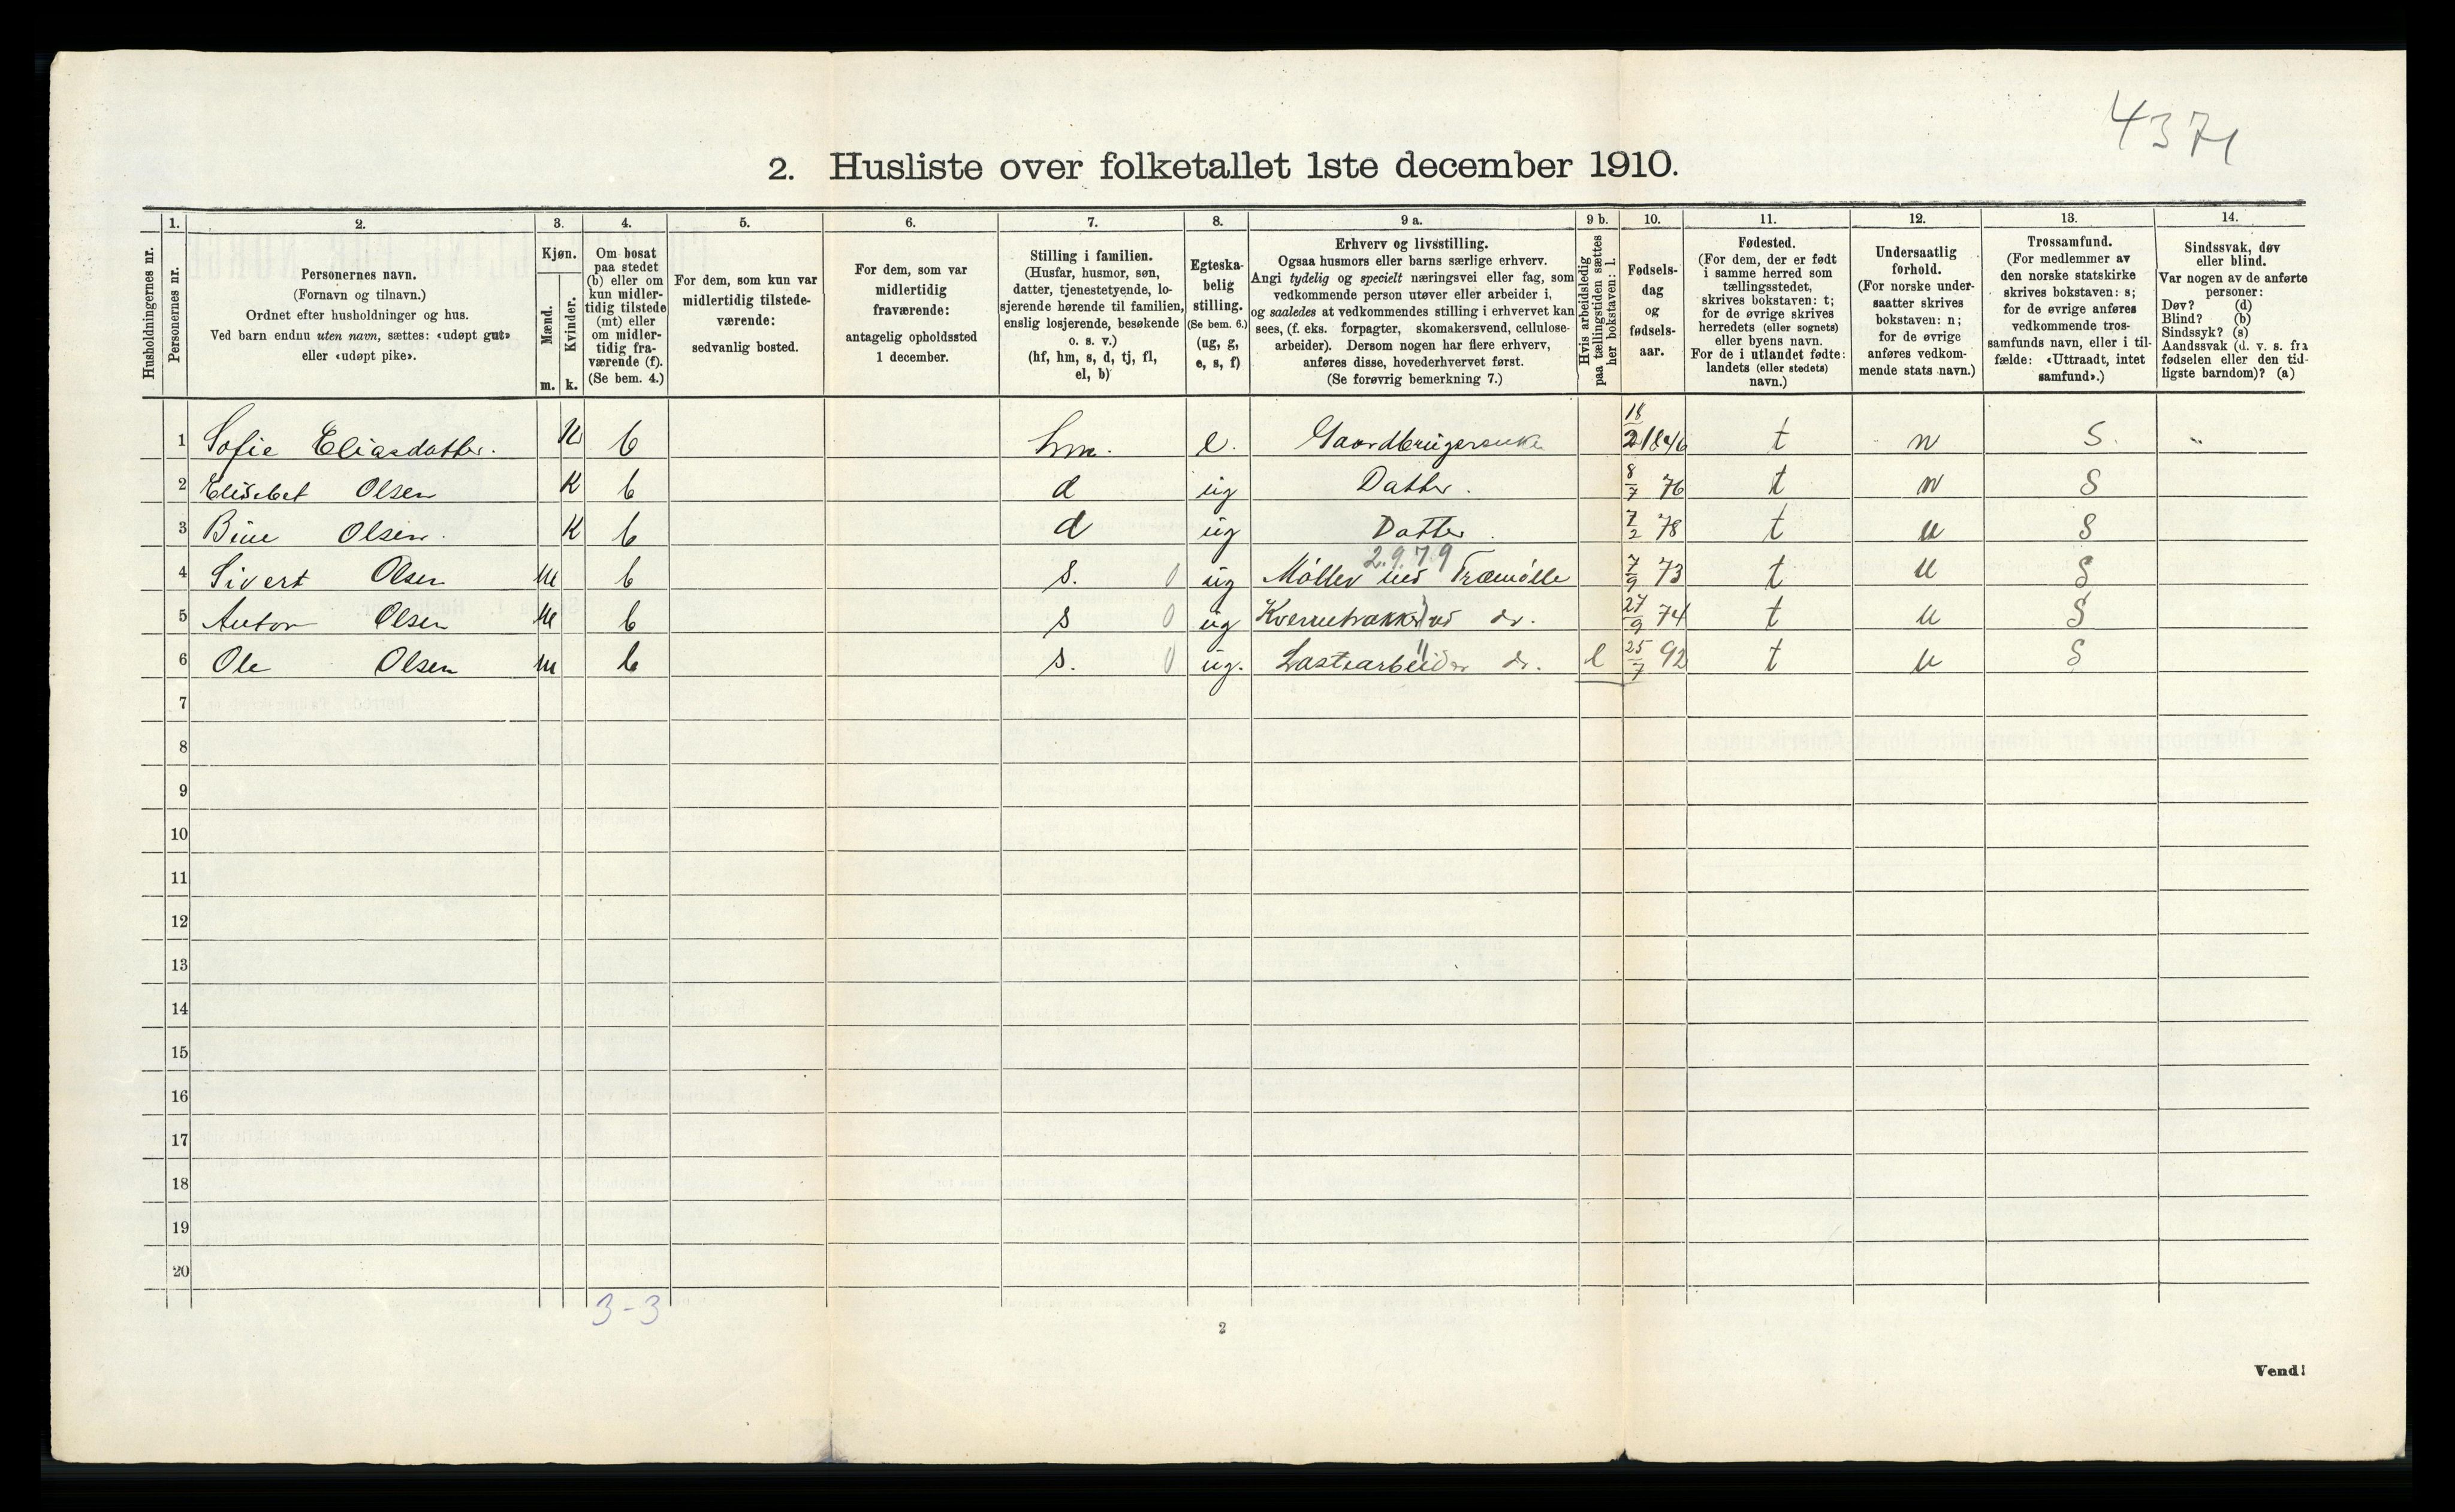 4371
2. Husliste over folketallet 1ste december 1910.
Husholdningernes nr.
1.
Personernes nr.
2.
Personernes navn.
(Fornavn og tilnavn.)
Ordnet efter husholdninger og hus.
Ved barn endnu uten navn, sættes: «udøpt gut»
eller «udøpt pike».
3.
Kjøn.
Mænd.
Kvinder.
m. k.
4.
Om bosat
paa stedet
(b) eller om
kun midler-
tidig tilstede
(mt) eller
om midler-
tidig fra-
værende (f).
(Se bem. 4.)
5.
For dem, som kun var
midlertidig tilstede-
værende:
sedvanlig bosted.
6.
For dem, som var
midlertidig
fraværende:
antagelig opholdssted
1 december.
7.
Stilling i familien.
(Husfar, husmor, søn,
datter, tjenestetyende, lo-
sjerende hørende til familien,
enslig losjerende, besøkende
o. s. v.)
(hf, hm, s, d, tj, fl,
el, b)
8.
Egteska-
belig
stilling.
(Se bem. 6.)
(ug, g,
e, s, f)
9 a.
Erhverv og livsstilling.
Ogsaa husmors eller barns særlige erhverv.
Angi tydelig og specielt næringsvei eller fag, som
vedkommende person utøver eller arbeider i,
og saaledes at vedkommendes stilling i erhvervet kan
sees, (f. eks. forpagter, skomakersvend, cellulose-
arbeider). Dersom nogen har flere erhverv,
anføres disse, hovederhvervet først.
(Se forøvrig bemerkning 7.)
9 b.
Hvis arbeidsledig
paa tællingstiden sættes
her bokstaven: l.
10.
Fødsels-
dag
og
fødsels-
aar.
11.
Fødested.
(For dem, der er født
i samme herred som
tællingsstedet,
skrives bokstaven: t;
for de øvrige skrives
herredets (eller sognets)
eller byens navn.
For de i utlandet fødte:
landets (eller stedets)
navn.)
12.
Undersaatlig
forhold.
(For norske under-
saatter skrives
bokstaven: n;
for de øvrige
anføres vedkom-
mende stats navn.)
13.
Trossamfund.
(For medlemmer av
den norske statskirke
skrives bokstaven: s;
for de øvrige anføres
vedkommende tros-
samfunds navn, eller i til-
fælde: «Uttraadt, intet
samfund».)
14.
Sindssvak, døv
eller blind.
Var nogen av de anførte
personer:
Døv? (d)
Blind? (b)
Sindssyk? (s)
Aandssvak (d. v. s. fra
fødselen eller den tid-
ligste barndom)? (a)
1 Sofie Eliasdatter. K b hm. e. Gaardbrugerenke 18/2 1846 t n S. "
2 Elisebet Olsen K b d ug Datter. 8/7 76 t n S
3 Bine Olsen. K b d ug Datter. 7/2 78 t n S
2.9.7.9
4 Sivert Olsen M b s. 0 ug Møller ved Træmølle 7/9 73 t n S
5 Anton Olsen M b s 0 ug ved do. 27/9 74 t n S
6 Ole Olsen M b s. 0 ug. Lastearbeider do. l 25/7 92 t n S
7
8
9
10
11
12
13
14
15
16
17
18
19
20
3-3
2
Vend!